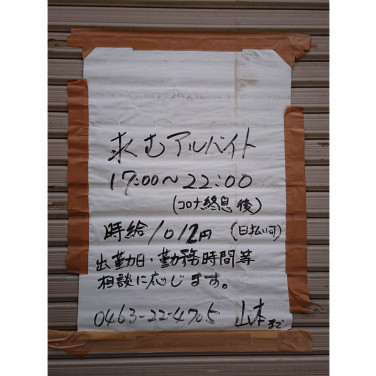 求むアルバイト
17:00~22:00
(コロナ終息後)
時給1012円(日払い可)
出勤日・勤務時間等
相談に応じます。
0463-22-4705 山本まで